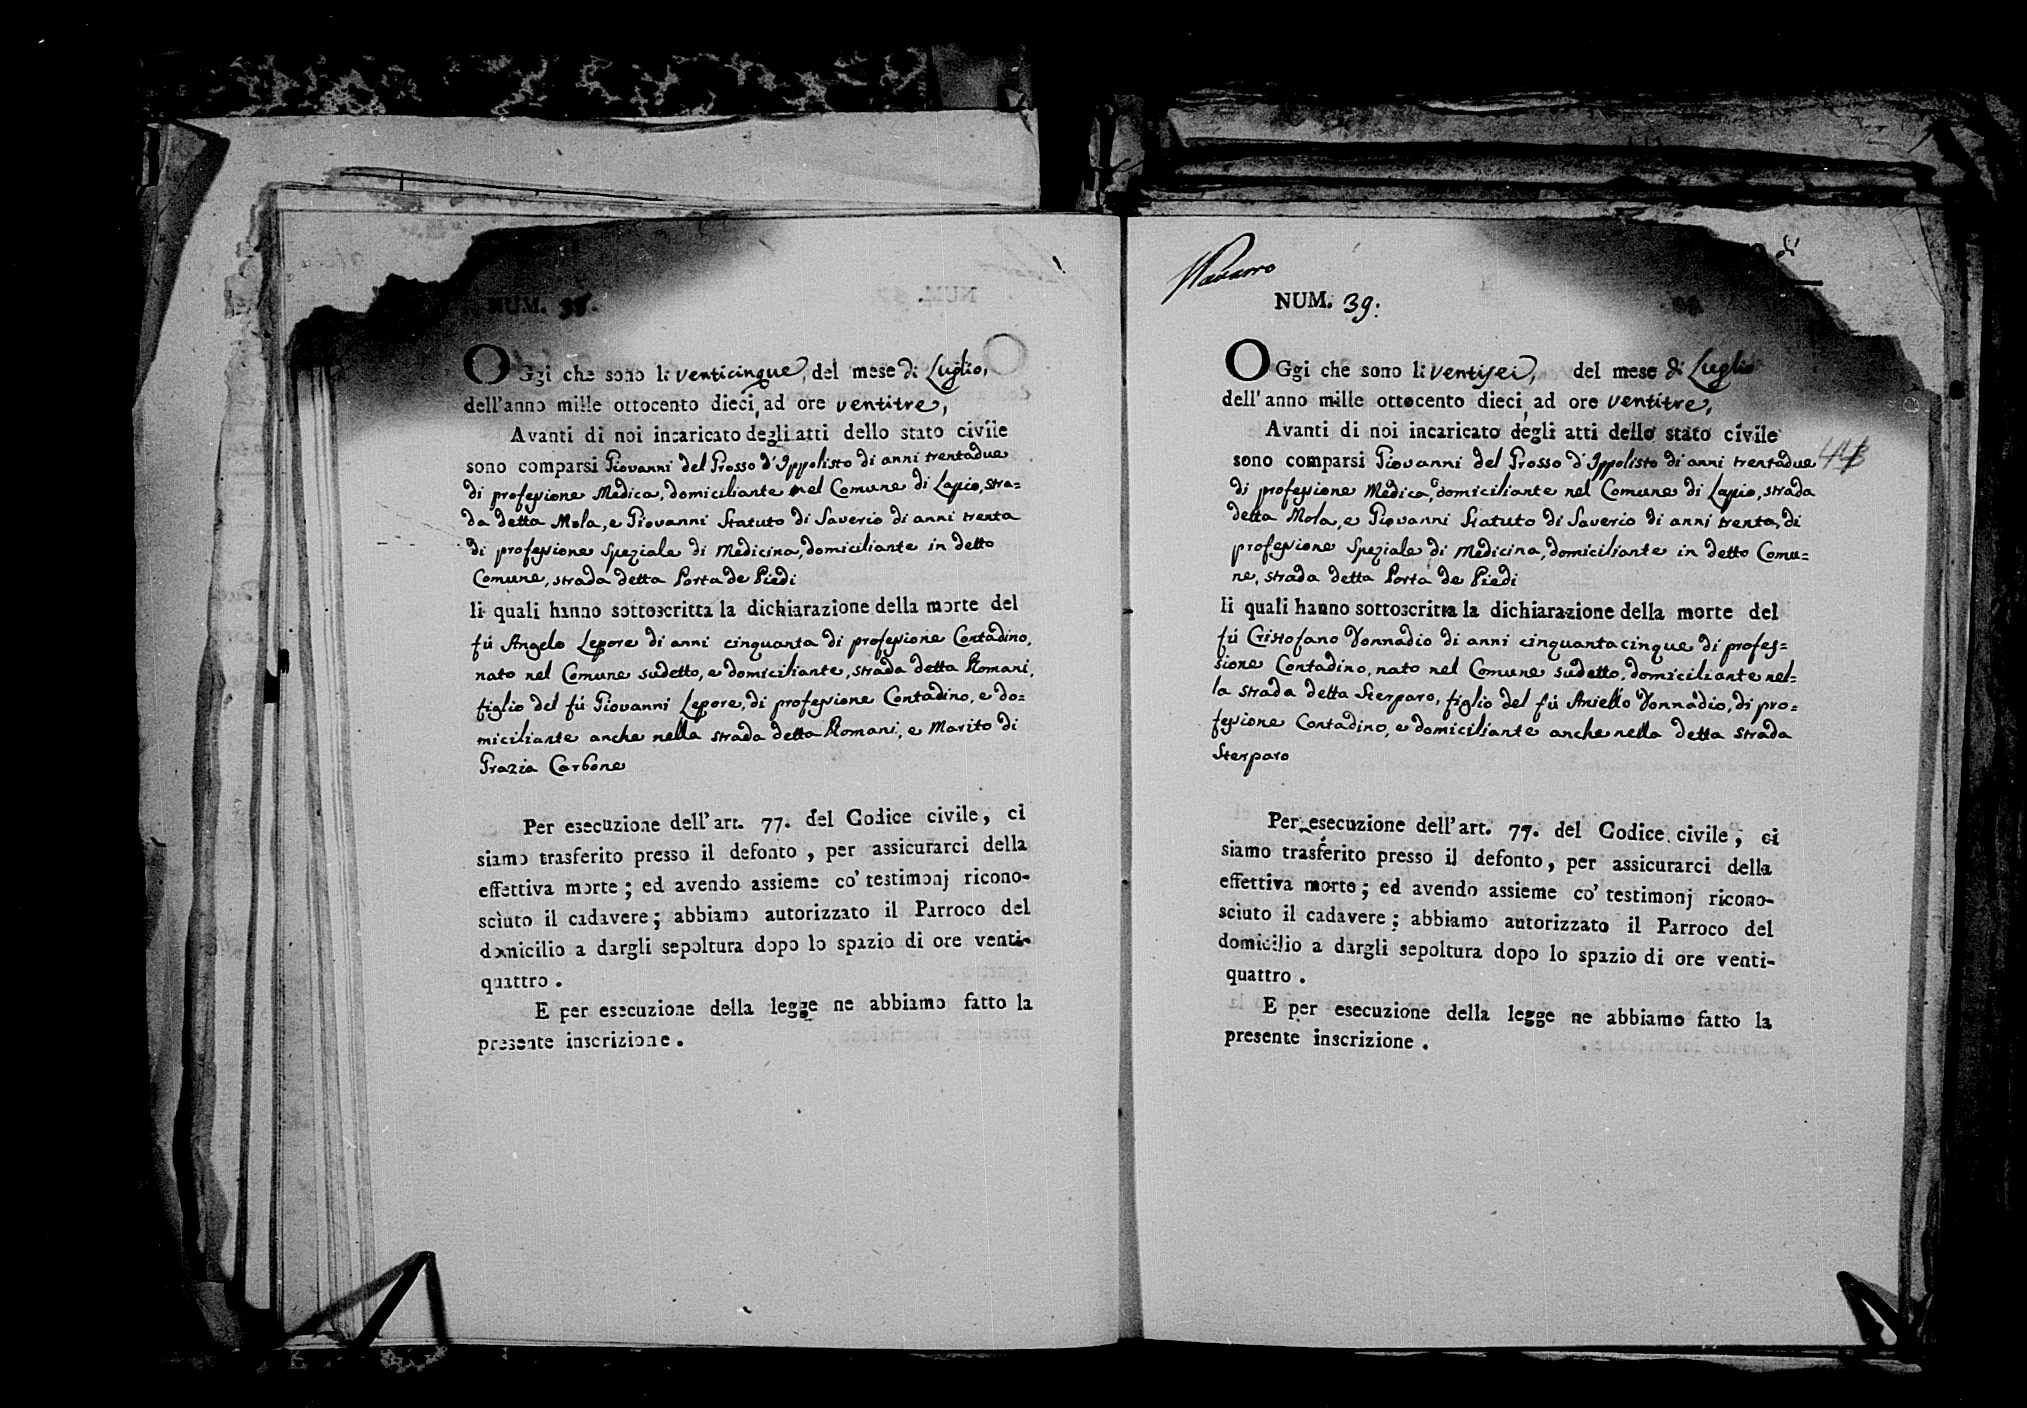 NUM. 38.
OGgi che sono li venticinque, del mese di Luglio,
dell'anno mille ottocento dieci, ad ore ventitre,
Avanti di noi incaricato degli atti dello stato civile
sono comparsi Giovanni del Grosso d'Ippolisto di anni trentadue
di professione Medica, domiciliante nel Comune di Lapio, stra=
da detta Mola, e Giovanni Statuto di Saverio di anni trenta
di professione Speziale di Medicina, domiciliante in detto
Comune, strada detta Porta de Piedi
li quali hanno sottoscritta la dichiarazione della morte del
fù Angelo Lepore di anni cinquanta di professione Contadino,
nato nel Comune sudetto, e domiciliante, strada detta Romani,
figlio del fù Giovanni Lepore, di professione Contadino, e do=
miciliante anche nella strada detta Romani, e Marito di
Grazia Carbone
Per esecuzione dell'art. 77. del Codice civile, ci
siamo trasferito presso il defonto, per assicurarci della
effettiva morte; ed avendo assieme co' testimonj ricono-
sciuto il cadavere; abbiamo autorizzato il Parroco del
domicilio a dargli sepoltura dopo lo spazio di ore venti-
quattro.
E per esecuzione della legge ne abbiamo fatto la
presente inscrizione.
Navarro
di
NUM. 39.
OGgi che sono li ventisei, del mese di Luglio
dell'anno mille ottocento dieci, ad ore ventitre,
Avanti di noi incaricato degli atti dello stato civile
sono comparsi Giovanni del Grosso d'Ippolisto di anni trentadue
di professione Medica, domiciliante nel Comune di Lapio, strada
detta Mola, e Giovanni Statuto di Saverio di anni trenta, di
professione Speziale di Medicina, domiciliante in detto Comu=
ne, strada detta Porta de Piedi
li quali hanno sottoscritta la dichiarazione della morte del
fù Cristofano Donnadio di anni cinquantacinque di profes=
sione Contadino, nato nel Comune sudetto, domiciliante nel=
la strada detta Sterparo, figlio del fù Aniello Donnadio, di pro=
fessione Contadino, e domiciliante anche nella detta strada
Sterparo
Per esecuzione dell'art. 77. del Codice civile, ci
siamo trasferito presso il defonto, per assicurarci della
effettiva morte; ed avendo assieme co' testimonj ricono-
sciuto il cadavere; abbiamo autorizzato il Parroco del
domicilio a dargli sepoltura dopo lo spazio di ore venti-
quattro.
E per esecuzione della legge ne abbiamo fatto la
presente inscrizione.